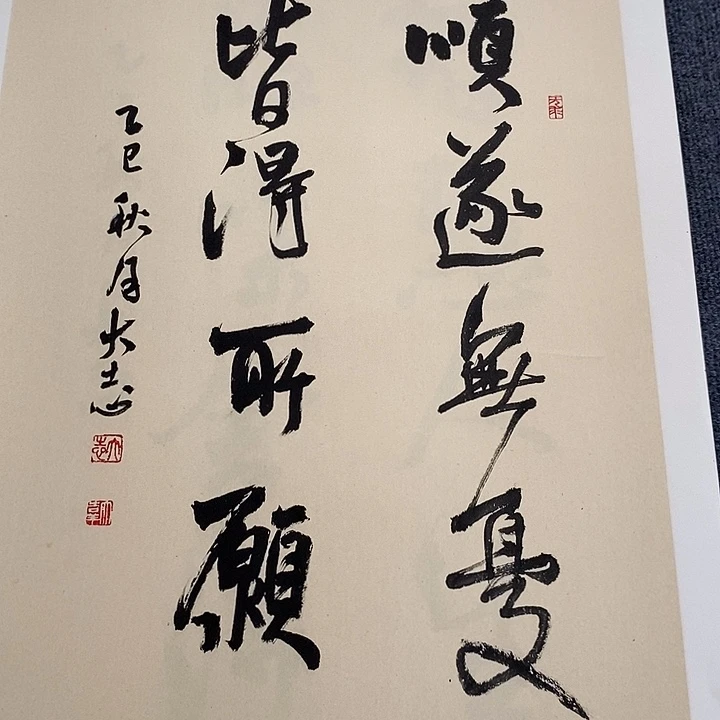 順遂無憂
皆得所願
乙巳秋月大志